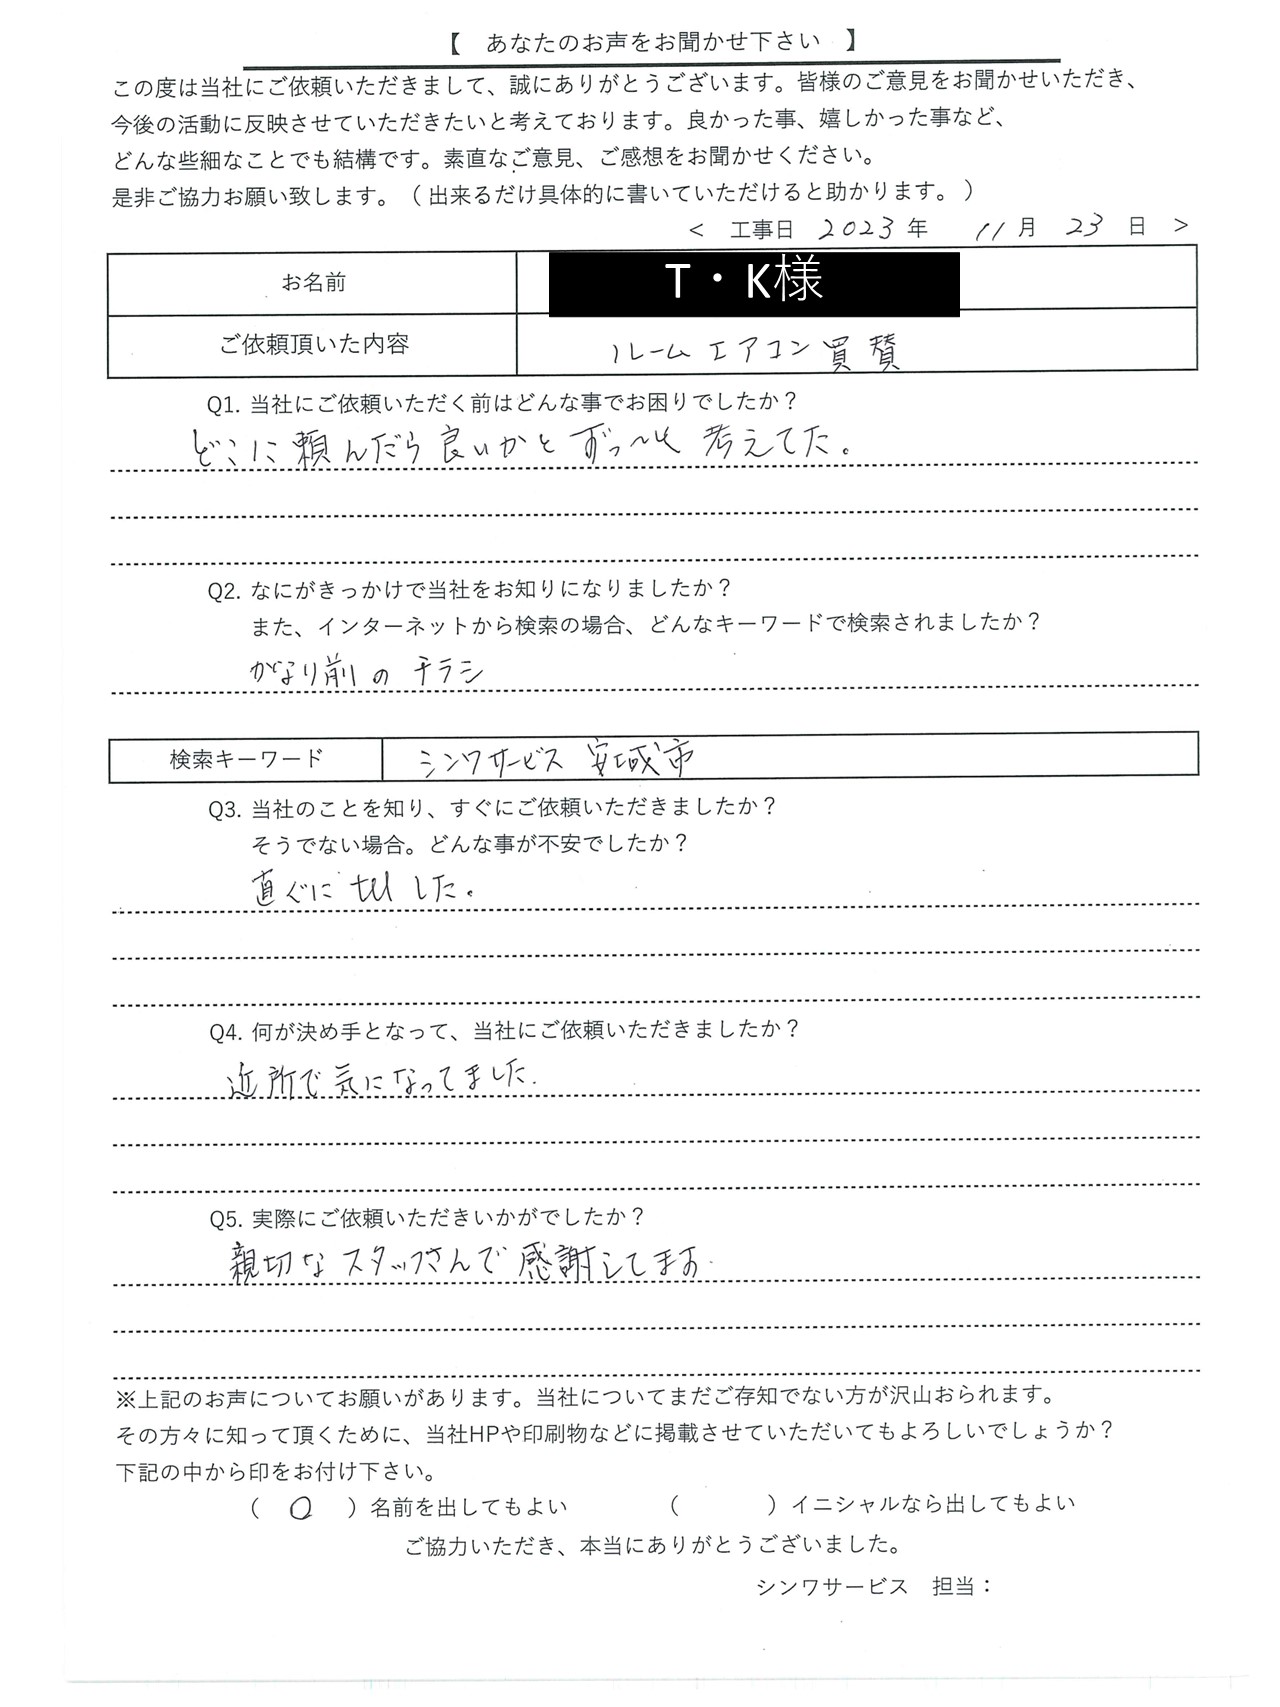 【 あなたのお声をお聞かせ下さい 】
この度は当社にご依頼いただきまして、誠にありがとうございます。皆様のご意見をお聞かせいただき、
今後の活動に反映させていただきたいと考えております。良かった事、嬉しかった事など、
どんな些細なことでも結構です。素直なご意見、ご感想をお聞かせください。
是非ご協力お願い致します。（ 出来るだけ具体的に書いていただけると助かります。 ）
＜ 工事日 2023 年 11 月 23 日 ＞
お名前 T・K様
ご依頼頂いた内容 ルームエアコン買賛
Q1. 当社にご依頼いただく前はどんな事でお困りでしたか？
どこに頼んだら良いかとずっ〜と考えてた。
Q2. なにがきっかけで当社をお知りになりましたか？
また、インターネットから検索の場合、どんなキーワードで検索されましたか？
かなり前の チラシ
検索キーワード シンワサービス 安城市
Q3. 当社のことを知り、すぐにご依頼いただきましたか？
そうでない場合。どんな事が不安でしたか？
直ぐに tel した。
Q4. 何が決め手となって、当社にご依頼いただきましたか？
近所で気になってました.
Q5. 実際にご依頼いただきいかがでしたか？
親切なスタッフさんで感謝してます.
※上記のお声についてお願いがあります。当社についてまだご存知でない方が沢山おられます。
その方々に知って頂くために、当社HPや印刷物などに掲載させていただいてもよろしいでしょうか？
下記の中から印をお付け下さい。
（ ○ ）名前を出してもよい （ ）イニシャルなら出してもよい
ご協力いただき、本当にありがとうございました。
シンワサービス 担当：